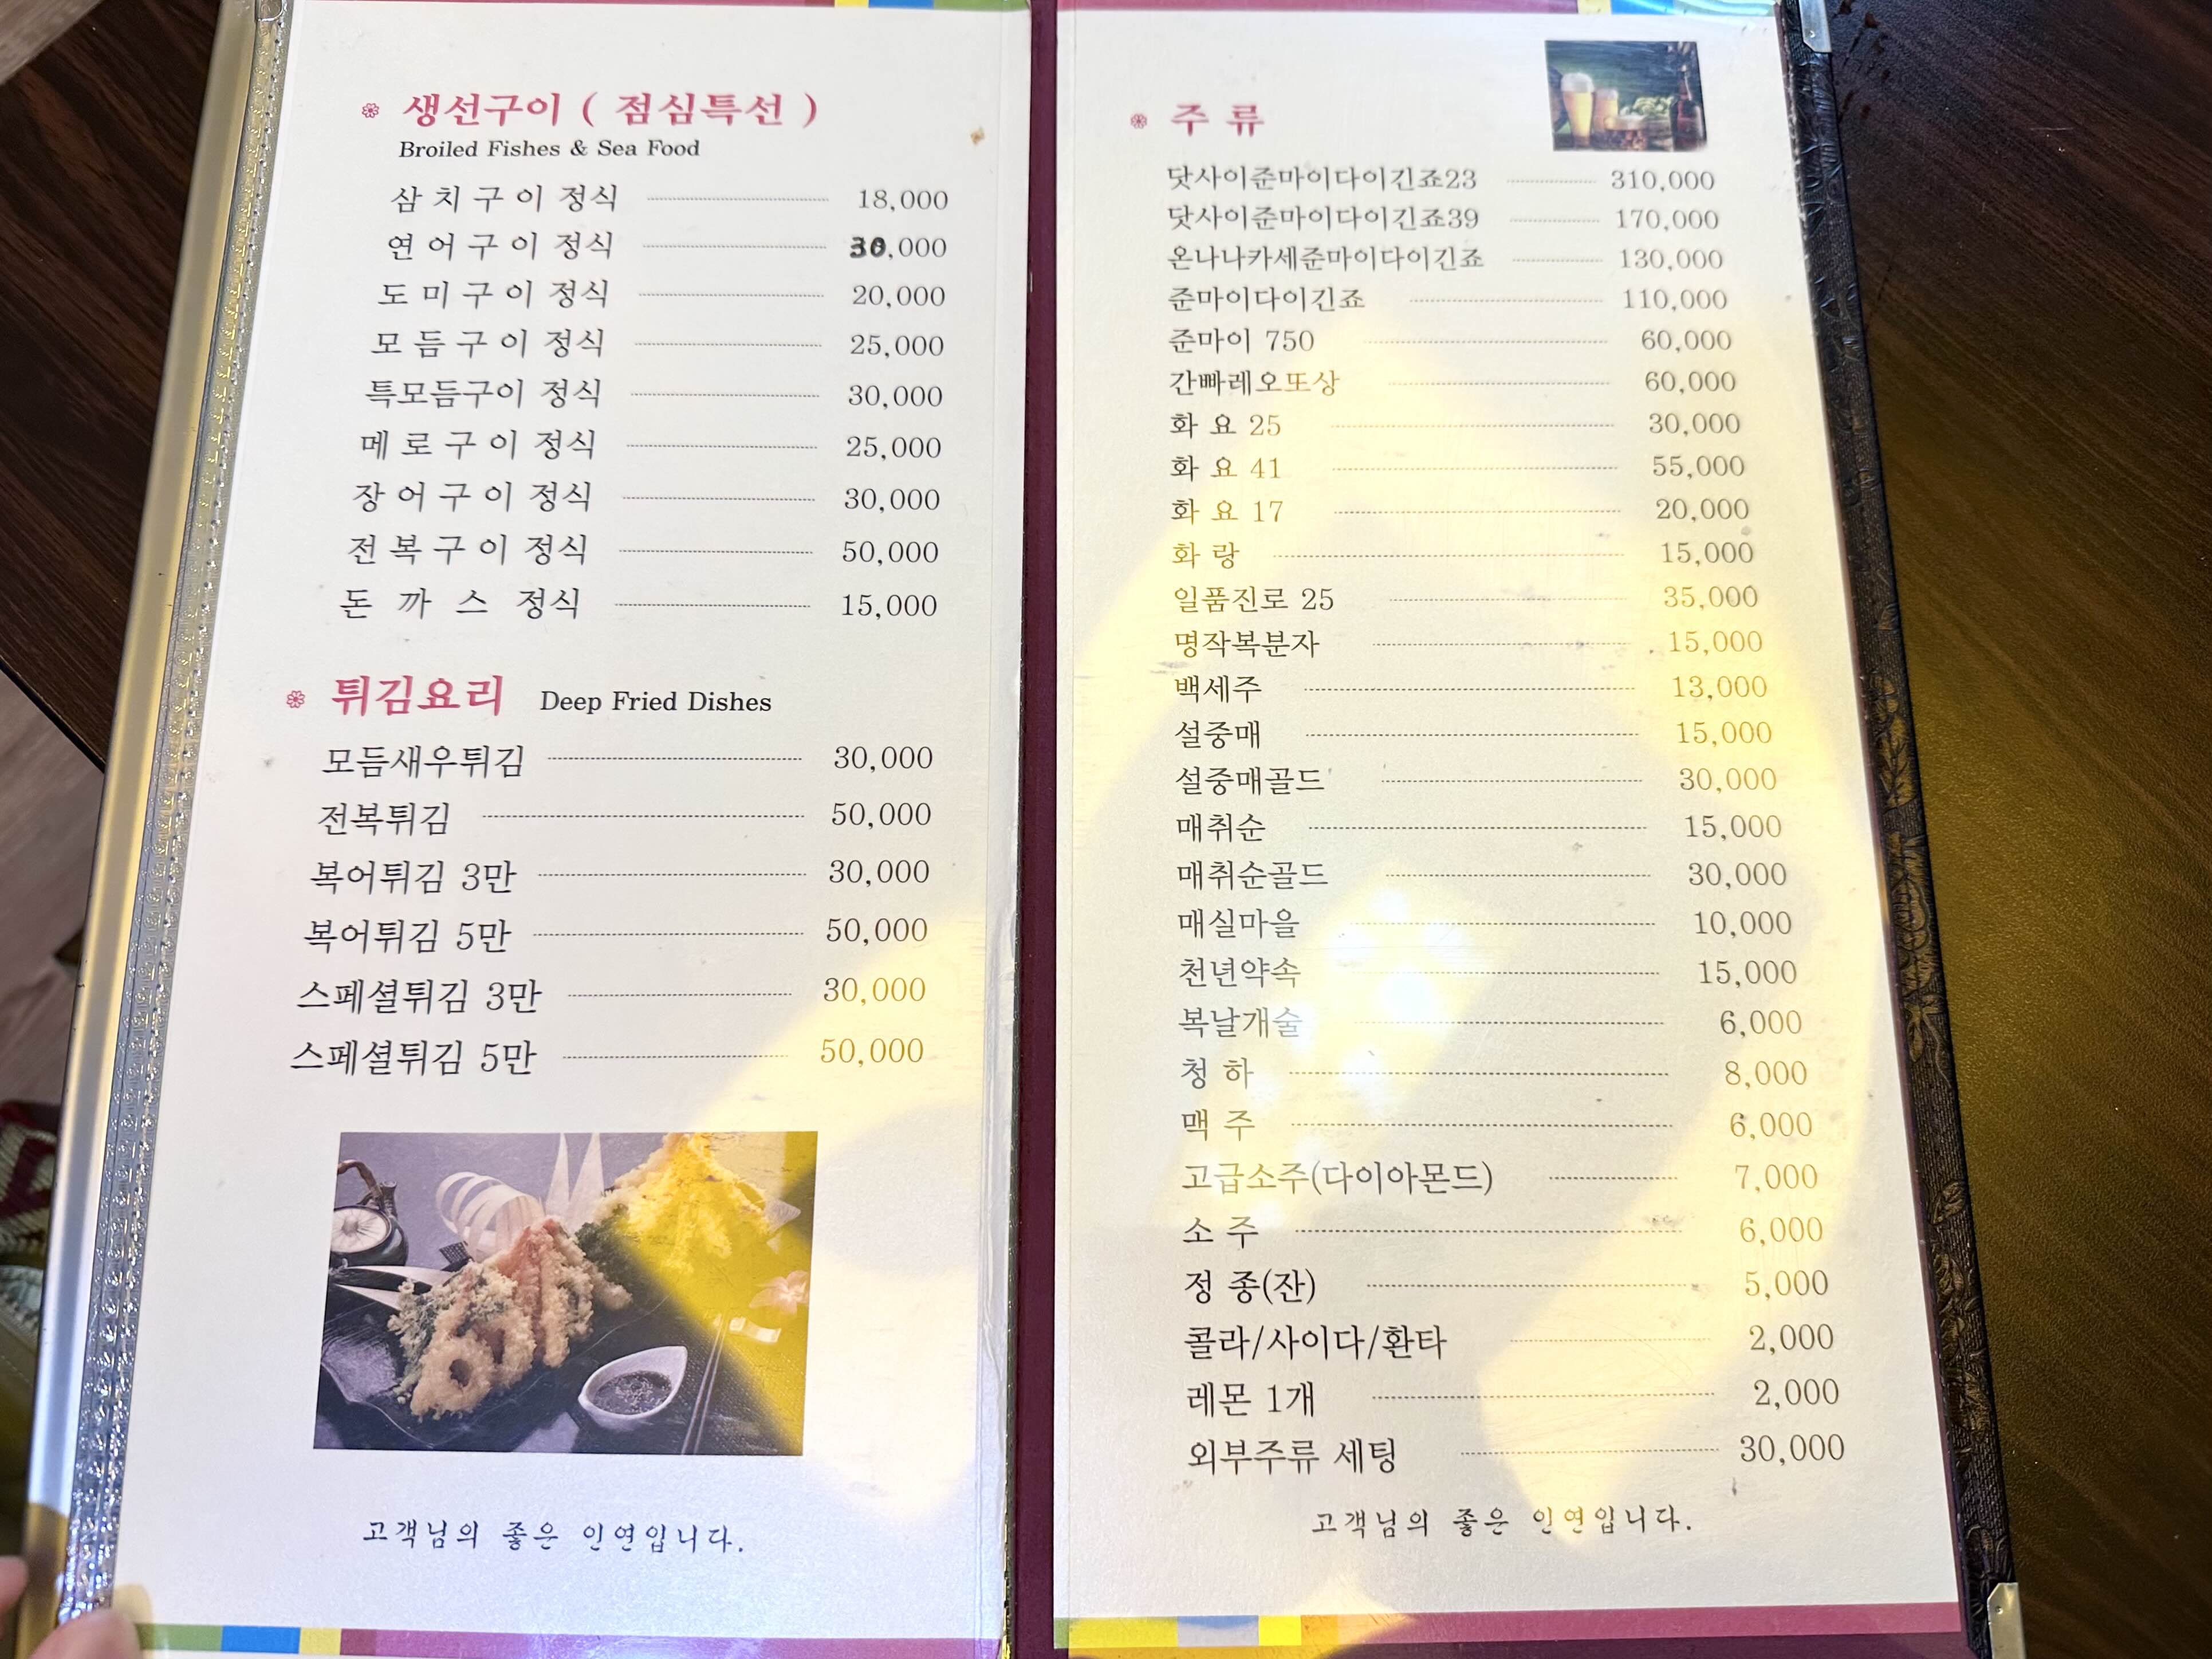 생선구이 ( 점심특선 )
Broiled Fishes & Sea Food
삼 치 구 이 정식 18,000
연 어 구 이 정식 30,000
도 미 구 이 정식 20,000
모 듬 구 이 정식 25,000
특모듬구이 정식 30,000
메 로 구 이 정식 25,000
장 어 구 이 정식 30,000
전 복 구 이 정식 50,000
돈 까 스 정식 15,000
튀김요리 Deep Fried Dishes
모듬새우튀김 30,000
전복튀김 50,000
복어튀김 3만 30,000
복어튀김 5만 50,000
스페셜튀김 3만 30,000
스페셜튀김 5만 50,000
고객님의 좋은 인연입니다.
주 류
닷사이준마이다이긴죠23 310,000
닷사이준마이다이긴죠39 170,000
온나나카세준마이다이긴죠 130,000
준마이다이긴죠 110,000
준마이 750 60,000
간빠레오또상 60,000
화 요 25 30,000
화 요 41 55,000
화 요 17 20,000
화 랑 15,000
일품진로 25 35,000
명작복분자 15,000
백세주 13,000
설중매 15,000
설중매골드 30,000
매취순 15,000
매취순골드 30,000
매실마을 10,000
천년약속 15,000
복날개술 6,000
청 하 8,000
맥 주 6,000
고급소주(다이아몬드) 7,000
소 주 6,000
정 종(잔) 5,000
콜라/사이다/환타 2,000
레몬 1개 2,000
외부주류 세팅 30,000
고객님의 좋은 인연입니다.